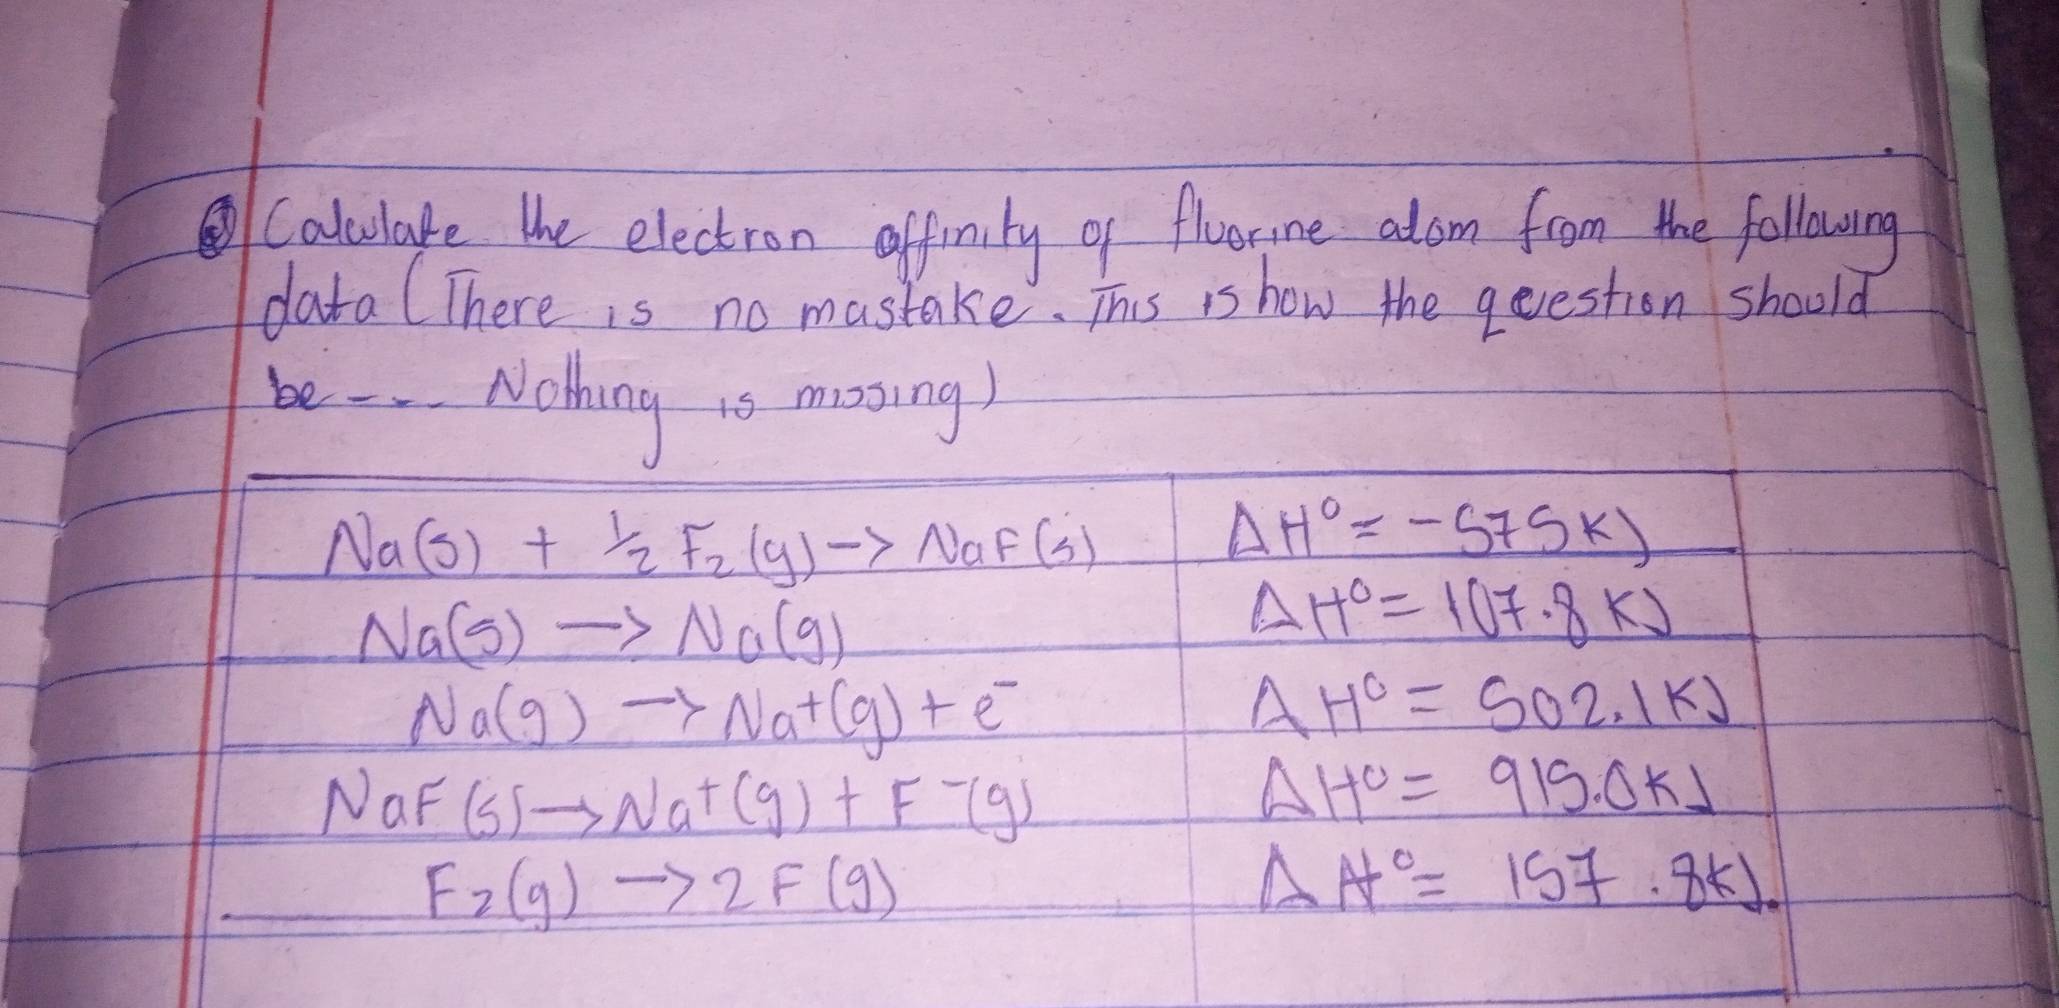 Calculate the electron affinity of fluorine atom from the following
data (There is no mastake. This is how the qeuestion should
be ---- Nothing is missing)
Na(s) + ½ F₂ (g) -> NaF(s) ΔH° = -575KJ
Na(s) -> Na(g) ΔH° = 107.8 KJ
Na(g) -> Na+(g) + e⁻ ΔH° = 502.1KJ
NaF(s) -> Na+(g) + F⁻(g) ΔH° = 915.0KJ
F₂(g) -> 2F(g) ΔH° = 157.8KJ.